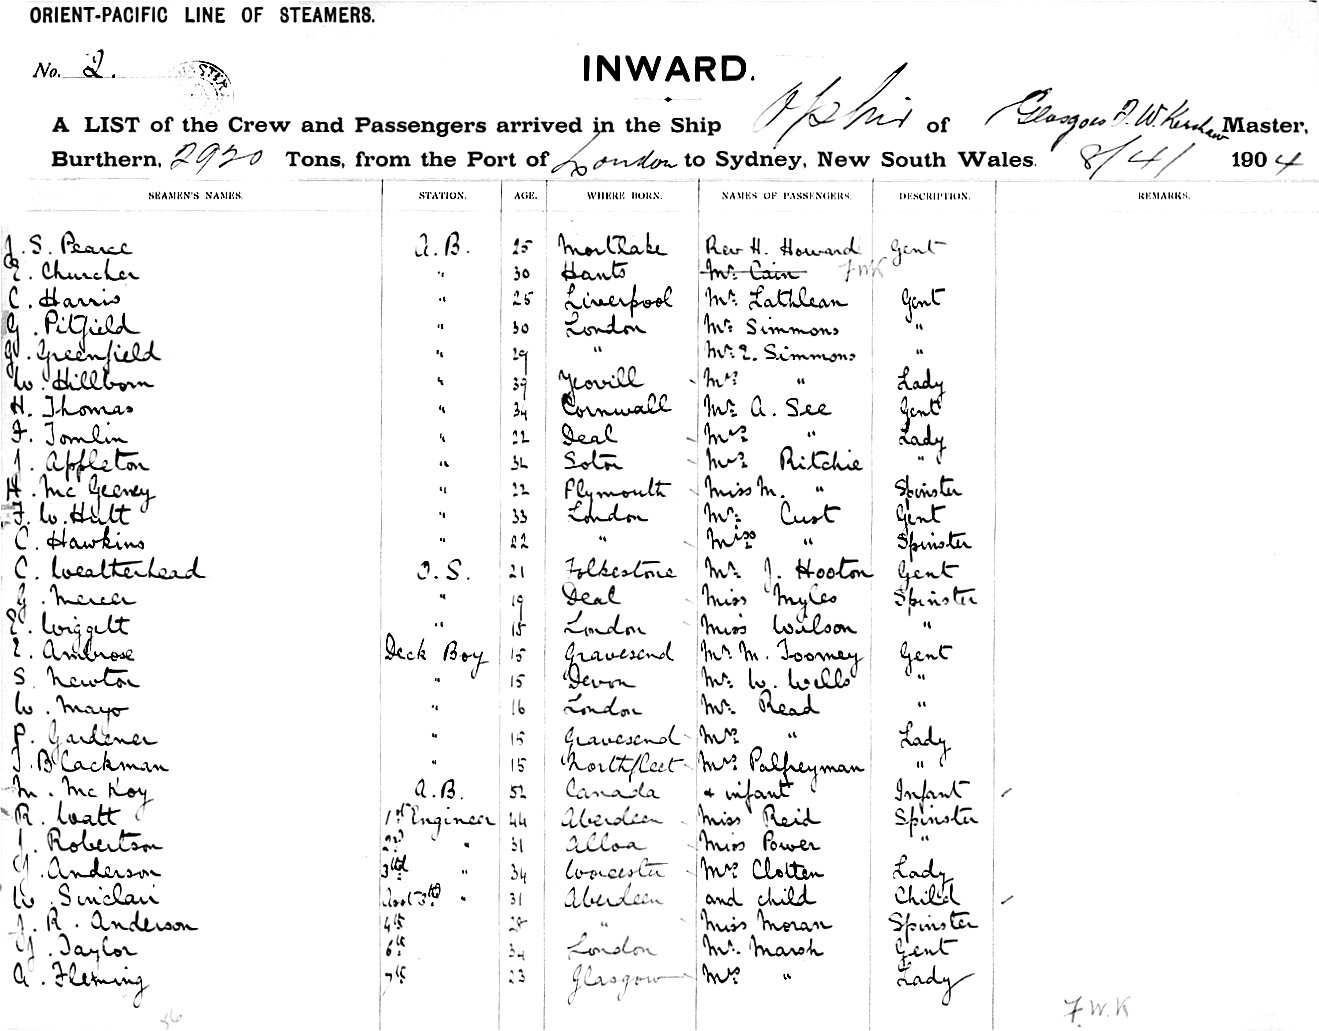 ORIENT-PACIFIC LINE OF STEAMERS.
No. 2.
INWARD.
A LIST of the Crew and Passengers arrived in the Ship Ophir of Glasgow F. W. Kershaw Master,
Burthern, 2920 Tons, from the Port of London to Sydney, New South Wales. 8/4/ 1904
SEAMEN'S NAMES. STATION. AGE. WHERE BORN. NAMES OF PASSENGERS. DESCRIPTION. REMARKS.
J. S. Pearce A.B. 25 Mortlake Rev H. Howard Gent
E. Churcher " 30 Hants Mr. Cain FWK
C. Harris " 25 Liverpool Mr. Lathlean Gent
G. Pitfield " 30 London Mr. Simmons "
G. Greenfield " 29 " Mr. E. Simmons "
W. Hillborn " 39 Yeovill Mrs " Lady
H. Thomas " 34 Cornwall Mr. A. See Gent
F. Tomlin " 22 Deal Mrs " Lady
J. Appleton " 32 Soton Mrs Ritchie "
H. McGeeney " 22 Plymouth Miss M. " Spinster
F. W. Hutt " 33 London Mr. Cust Gent
C. Hawkins " 22 " Miss " Spinster
C. Weatherhead O.S. 21 Folkestone Mr. J. Hooton Gent
G. Mercer " 19 Deal Miss Myles Spinster
E. Wiggett " 18 London Miss Wilson "
E. Ambrose Deck Boy 15 Gravesend Mr. M. Toomey Gent
S. Newton " 15 Devon Mr. W. Wells "
W. Mayo " 16 London Mr. Read "
P. Gardener " 15 Gravesend Mrs " Lady
J. Blackman " 15 Northfleet Mrs Palfreyman "
M. McKoy A.B. 52 Canada & infant Infant
R. Watt 1st Engineer 44 Aberdeen Miss Reid Spinster
J. Robertson 2nd " 31 Alloa Miss Power "
Anderson 3rd " 34 Worcester Mrs Clotten Lady
W. Sinclair Asst 3rd " 31 Aberdeen and child Child
J. R. Anderson 4th 28 " Miss Moran Spinster
Taylor 6th 34 London Mr. Marsh Gent
A. Fleming 7th 23 Glasgow Mrs " Lady
F.W.K